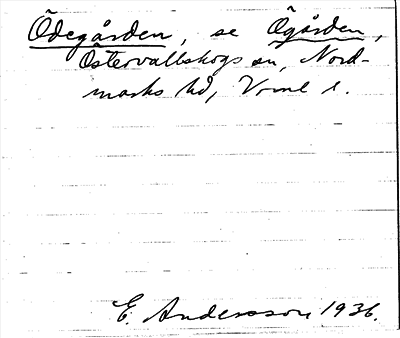 Ödegården, se Ögården,
Östervallskogs sn, Nord-
marks hd, Vrml l.
E. Andersson 1936.